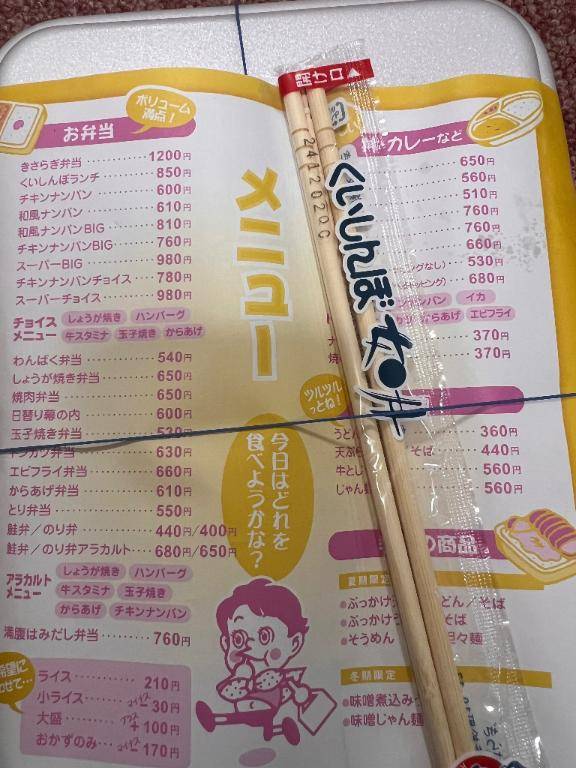 開け口
ボリューム
満点!
お弁当
きさらぎ弁当 1200円
くいしんぼランチ 850円
チキンナンバン 600円
和風ナンバン 610円
和風ナンバンBIG 810円
チキンナンバンBIG 760円
スーパーBIG 980円
チキンナンバンチョイス 780円
スーパーチョイス 980円
チョイス
メニュー
しょうが焼き ハンバーグ
牛スタミナ 玉子焼き からあげ
わんぱく弁当 540円
しょうが焼き弁当 650円
焼肉弁当 650円
日替り幕の内 600円
玉子焼き弁当 530円
トンカツ弁当 630円
エビフライ弁当 660円
からあげ弁当 610円
とり弁当 550円
鮭弁/のり弁 440円/400円
鮭弁/のり弁アラカルト 680円/650円
アラカルト
メニュー
しょうが焼き ハンバーグ
牛スタミナ 玉子焼き
からあげ チキンナンバン
満腹はみだし弁当 760円
ライス 210円
小ライス マイナス30円
大盛 プラス+100円
おかずのみ マイナス170円
メニュー
今日はどれを
食べようかな?
2412020C
くいしんぼ
カレーなど
650円
560円
510円
760円
760円
660円
530円
680円
イカ
からあげ エビフライ
370円
370円
ツルツル
っとね!
うどん そば 360円
440円
牛とじ 560円
560円
の商品
夏期限定
ぶっかけ うどん/そば
ぶっかけ そば
そうめん 担々麺
冬期限定
味噌煮込み
味噌じゃん麺